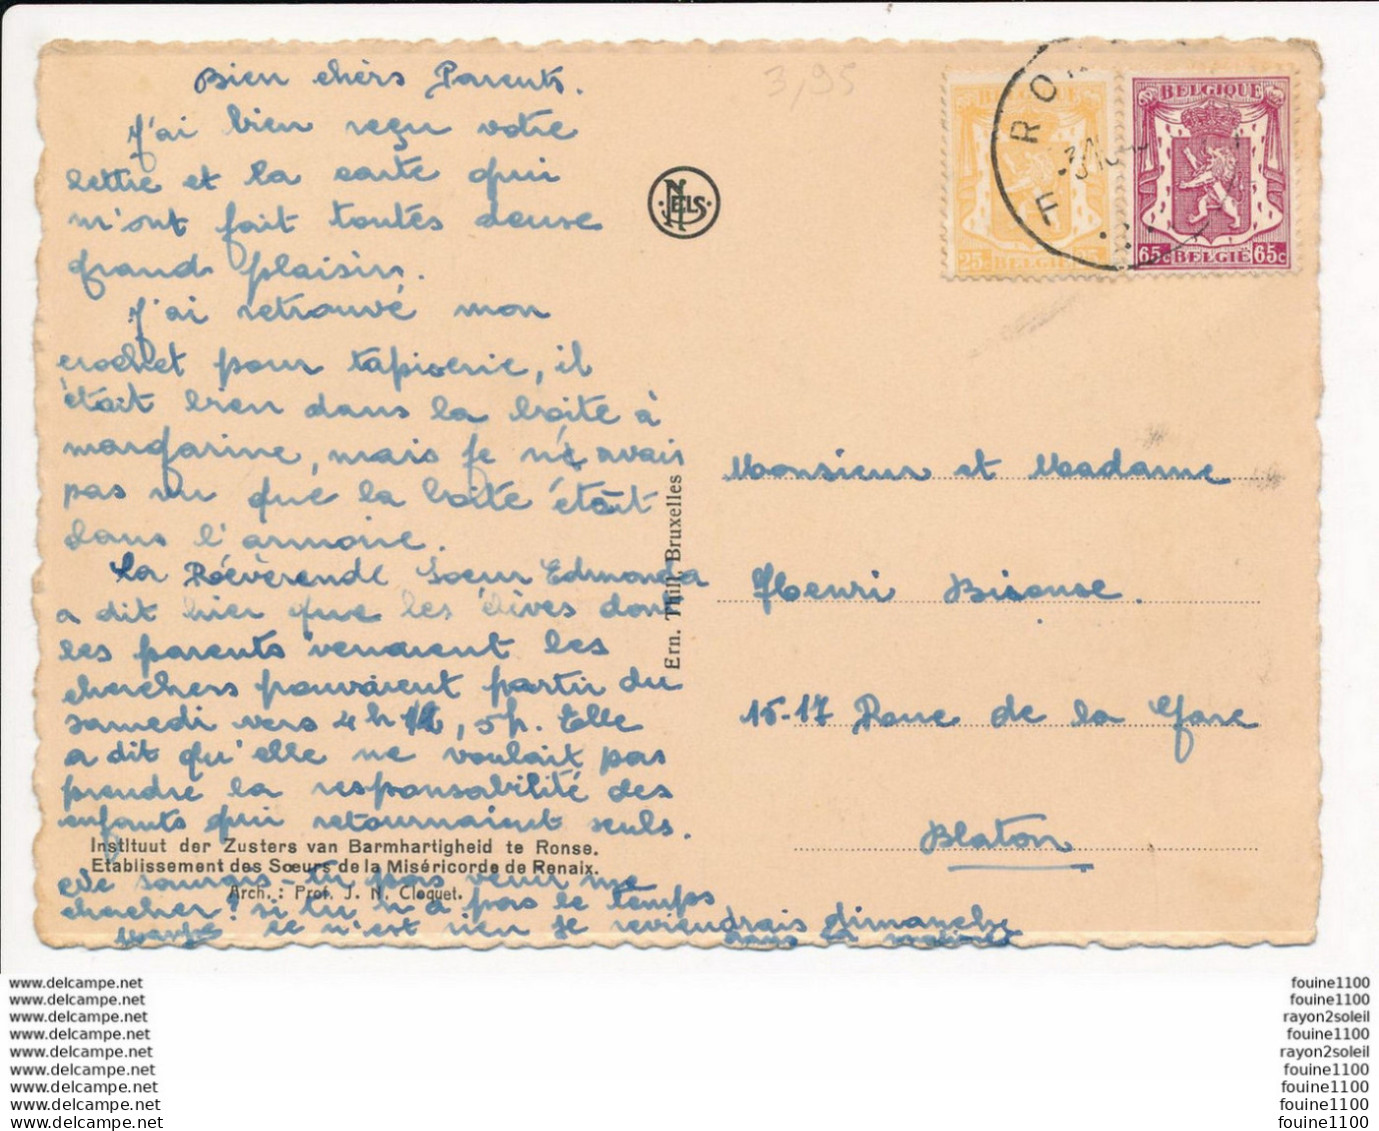 Bien chèrs Parents.
J'ai bien reçu votre
lettre et la carte qui
m'ont fait toutes deuse
grand plaisir.
J'ai retrouvé mon
crochet pour tapiserie, il
était bien dans la boite à
margarine, mais je n'avais
pas vu que la boite était
dans l'armoire.
La Réévèrende Soeur Edmonda
a dit hier que les élèves dont
les parents venaient les
cherchers pouvaient partir du
samedi vers 4h 1/2, 5h. Elle
a dit qu'elle ne voulait pas
prendre la responsabilité des
enfants qui retournaient seuls.
Instituut der Zusters van Barmhartigheid te Ronse.
Etablissement des Sœurs de la Miséricorde de Renaix.
Arch.: Prof. J. N. Cloquet.
venir me
chercher! si tu n'a pas le temps
ce n'est rien je reviendrais dimanche
3,95
NELS
Ern. Thill, Bruxelles
BELGIQUE
25c BELGIË
BELGIQUE
65c BELGIË 65c
Monsieur et Madame
Henri Bisouse.
15-17 Rue de la Gare
Blaton
www.delcampe.net
www.delcampe.net
www.delcampe.net
www.delcampe.net
www.delcampe.net
www.delcampe.net
www.delcampe.net
www.delcampe.net
www.delcampe.net
fouine1100
fouine1100
rayon2soleil
fouine1100
rayon2soleil
fouine1100
fouine1100
fouine1100
fouine1100